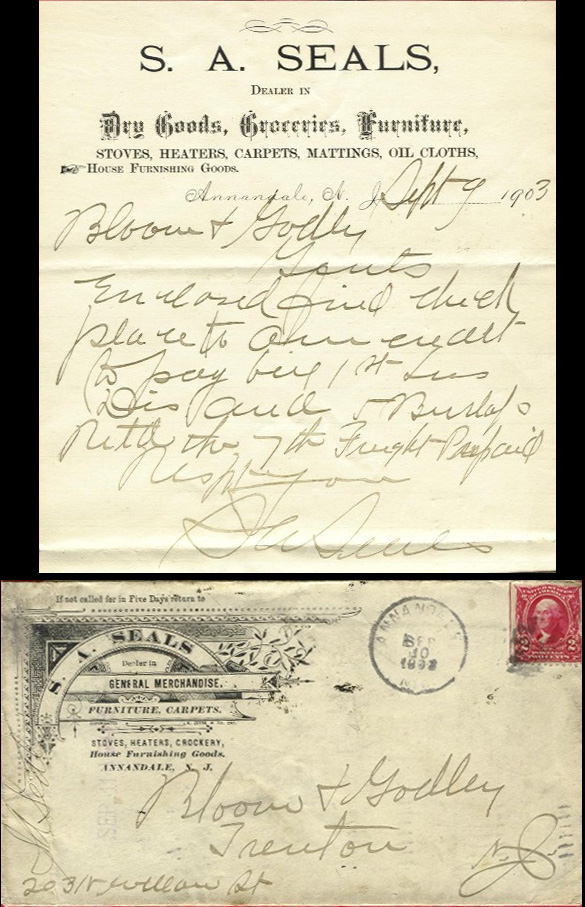 S. A. SEALS,
DEALER IN
Dry Goods, Groceries, Furniture,
STOVES, HEATERS, CARPETS, MATTINGS, OIL CLOTHS,
HOUSE FURNISHING GOODS.
Annandale, N. J. Sept 9 1903
Bloom & Godley
Gents
Enclosed find check
place to our credit
to pay bill 1st
Dis and 5 Burlaps
the 7th Freight Prepaid
Respt you
S A Seals
If not called for in Five Days return to
S. A. SEALS
Dealer in
GENERAL MERCHANDISE.
FURNITURE, CARPETS.
STOVES, HEATERS, CROCKERY,
House Furnishing Goods,
ANNANDALE, N. J.
ANNANDALE
SEP
10
1903
N.J.
Bloom & Godley
Trenton
N. J.
203 N Willow St